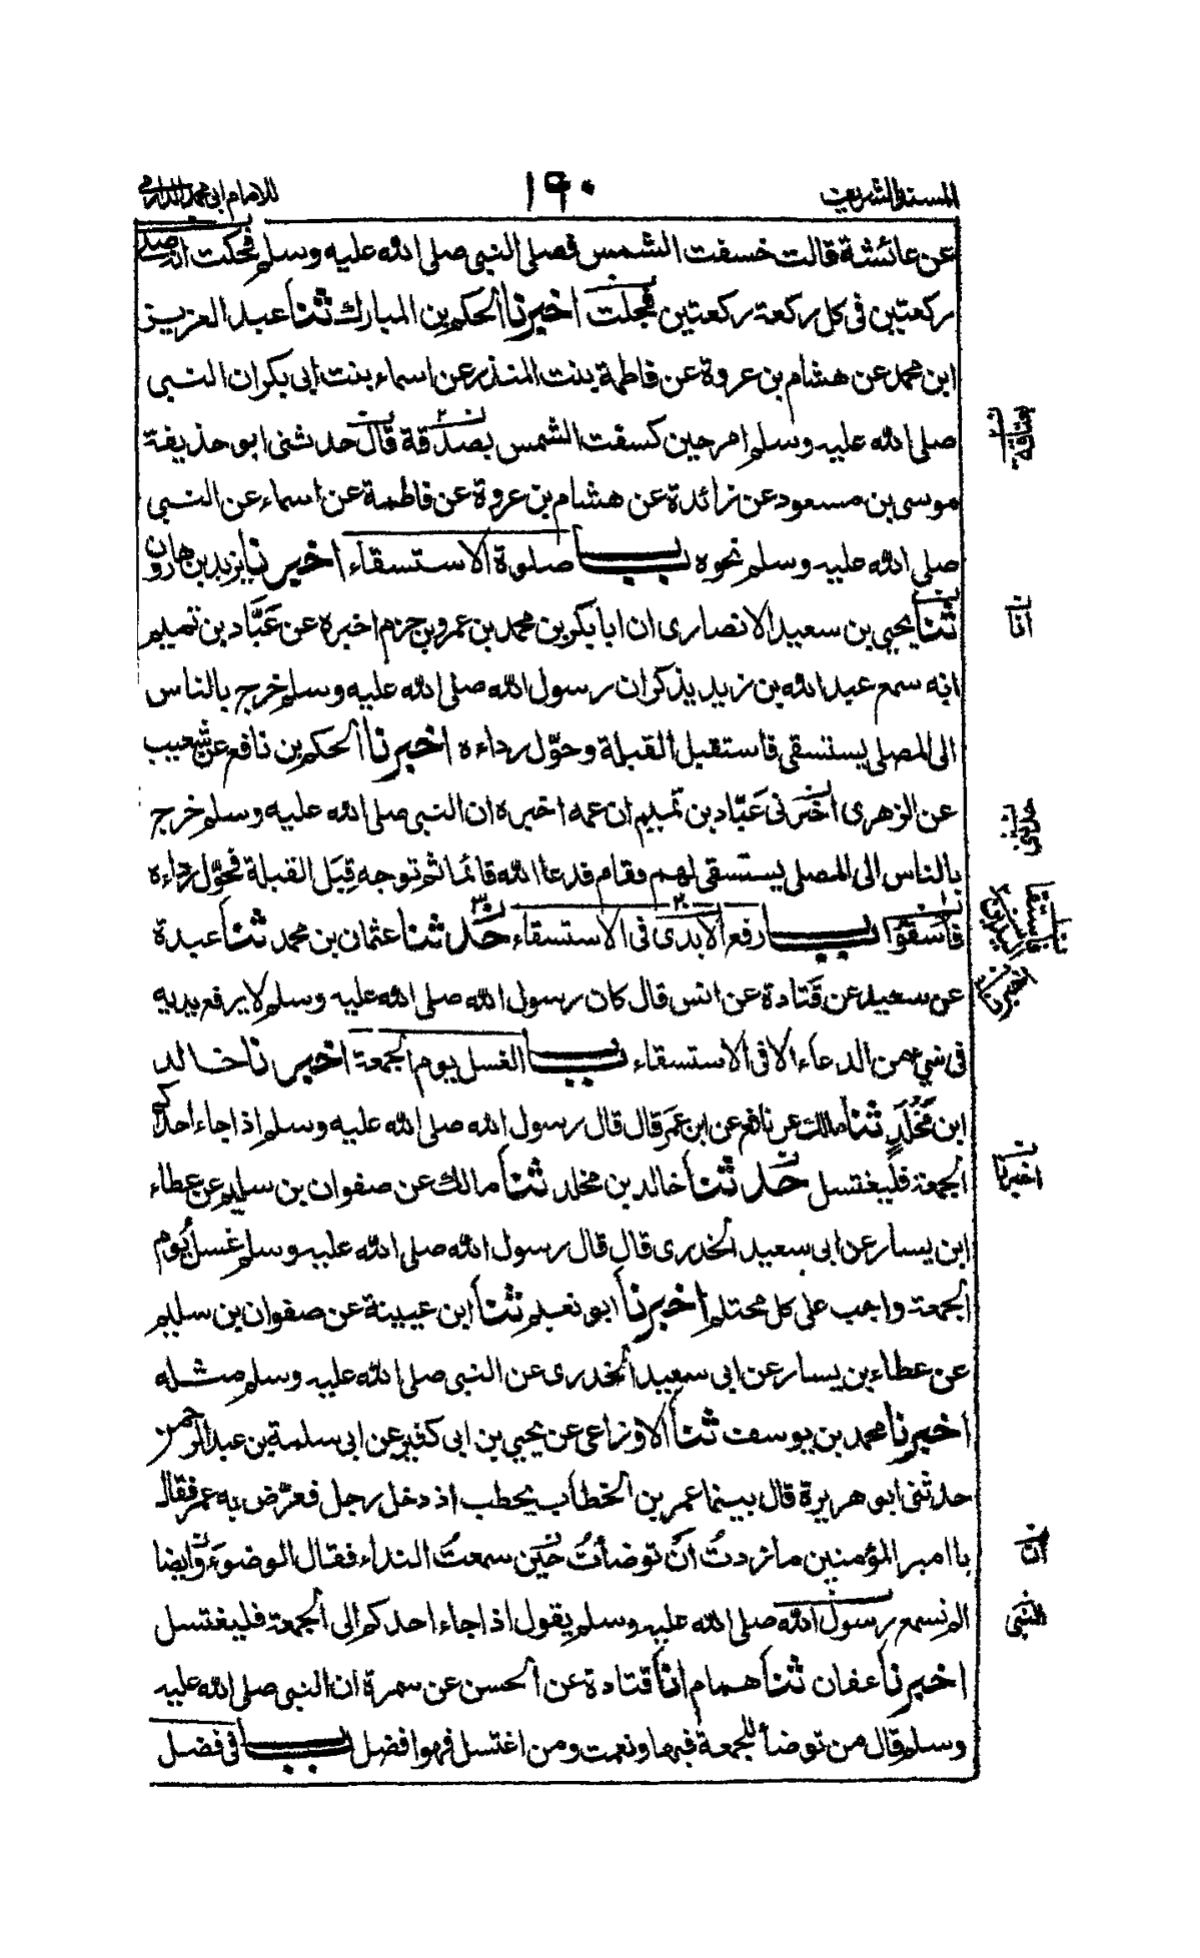 المسند الشريف
١٩٠
للامام ابى محمد الدارمى
عن عائشة قالت خسفت الشمس فصلى النبى صلى الله عليه وسلم فحكت انه صلى
ركعتين فى كل ركعة ركعتين فجلت اخبرنا الحكم بن المبارك ثنا عبد العزيز
ابن محمد عن هشام بن عروة عن فاطمة بنت المنذر عن اسماء بنت ابى بكر ان النبى
صلى الله عليه وسلم امر حين كسفت الشمس بصدقة قال حدثنى ابو حذيفة
بعتاقة
موسى بن مسعود عن زائدة عن هشام بن عروة عن فاطمة عن اسماء عن النبى
صلى الله عليه وسلم نحوه باب صلوة الاستسقاء اخبرنا يزيد بن هارون
ثنا يحيى بن سعيد الانصارى ان ابا بكر بن محمد بن عمرو بن حزم اخبره عن عَبَّاد بن تميم
انا
انه سمع عبد الله بن زيد يذكر ان رسول الله صلى الله عليه وسلم خرج بالناس
الى المصلى يستسقى فاستقبل القبلة وحوّل رداءه اخبرنا الحكم بن نافع عن شعيب
عن الزهرى اخبرنى عَبَّاد بن تميم ان عمه اخبره ان النبى صلى الله عليه وسلم خرج
حدثنى
بالناس الى المصلى يستسقى لهم فقام فدعا الله قائما ثم توجه قِبَل القبلة فحوّل رداءه
فاسقوا باب رفع الايدى فى الاستسقاء حدثنا عثمان بن محمد ثنا عبدة
عن سعيد عن قَتادة عن انس قال كان رسول الله صلى الله عليه وسلم لا يرفع يديه
اخبرنا
فى شىء من الدعاء الا فى الاستسقاء باب الغسل يوم الجمعة اخبرنا خالد
ابن مَخْلَدٍ ثنا مالك عن نافع عن ابن عمَر قال قال رسول الله صلى الله عليه وسلم اذا جاء احدكم
الجمعة فليغتسل حدثنا خالد بن مخلد ثنا مالك عن صفوان بن سليم عن عطاء
اخبرنا
ابن يسار عن ابى سعيد الخدرى قال قال رسول الله صلى الله عليه وسلم غسل يوم
الجمعة واجب على كل محتلم اخبرنا ابو نعيم ثنا ابن عيينة عن صفوان بن سليم
عن عطاء بن يسار عن ابى سعيد الخدرى عن النبى صلى الله عليه وسلم مثله
اخبرنا محمد بن يوسف ثنا الاوزاعى عن يحيى بن ابى كثير عن ابى سلمة بن عبد الرحمن
حدثنى ابو هريرة قال بينما عمر بن الخطاب يخطب اذ دخل رجل فعرّض به عمر فقال
يا امير المؤمنين ما زدتُ اَنْ توضأتُ حين سمعتُ النداء فقال الوضوءَ وايضا
ان
الم تسمع رسول الله صلى الله عليه وسلم يقول اذا جاء احدكم الى الجمعة فليغتسل
النبى
اخبرنا عفان ثنا همام انا قتادة عن الحسن عن سمرة ان النبى صلى الله عليه
وسلم قال من توضأ للجمعة فبها ونعمت ومن اغتسل فهو افضل باب فى فضل